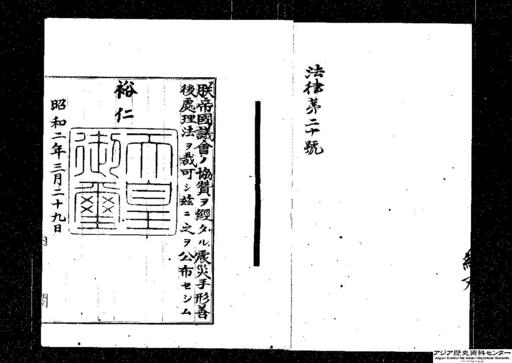 法律第二十號
朕帝國議會ノ協贊ヲ經タル震災手形善
後處理法ヲ裁可シ茲ニ之ヲ公布セシム
裕仁
天皇
御璽
昭和二年三月二十九日
アジア歴史資料センター
Japan Center for Asian Historical Records